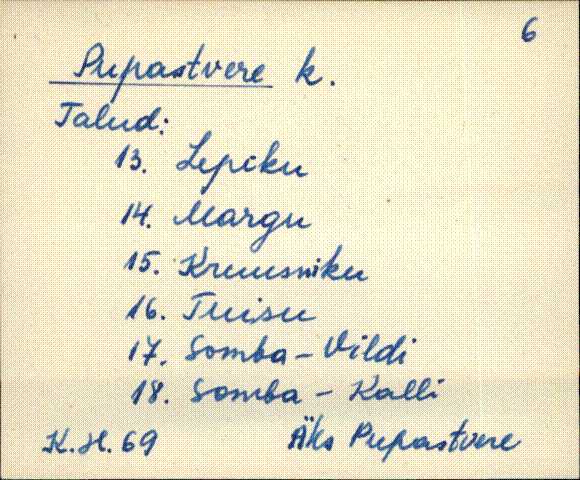 6
Pupastvere k.
Talud:
13. Lepiku
14. Margu
15. Kruusmiku
16. Tuisu
17. Somba - Vildi
18. Somba - Kalli
K.H. 69 Äks Pupastvere